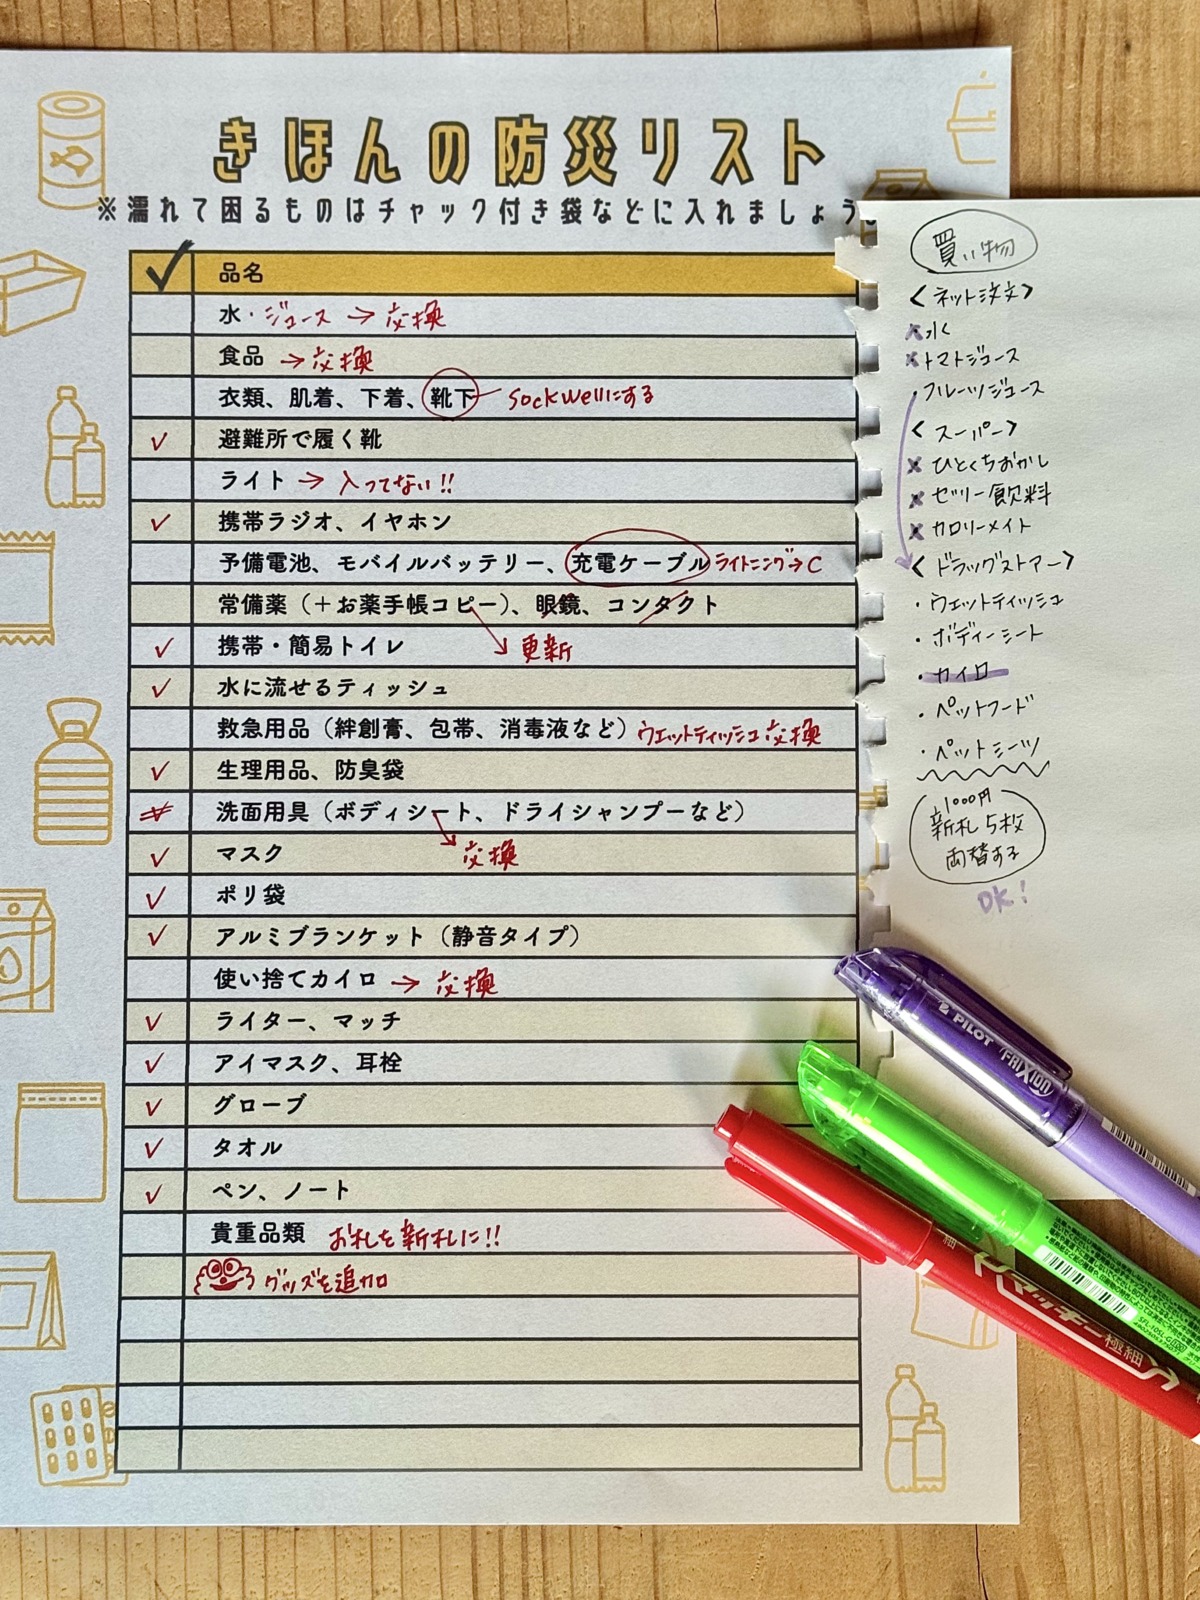 きほんの防災リスト
※濡れて困るものはチャック付き袋などに入れましょう。
品名
水・ジュース → 交換
食品 → 交換
衣類、肌着、下着、靴下 Sockwellにする
✓ 避難所で履く靴
ライト → 入ってない!!
✓ 携帯ラジオ、イヤホン
予備電池、モバイルバッテリー、充電ケーブル ライトニング→C
常備薬（＋お薬手帳コピー）、眼鏡、コンタクト
✓ 携帯・簡易トイレ 更新
✓ 水に流せるティッシュ
救急用品（絆創膏、包帯、消毒液など）ウェットティッシュ交換
✓ 生理用品、防臭袋
洗面用具（ボディシート、ドライシャンプーなど）
✓ マスク 交換
✓ ポリ袋
✓ アルミブランケット（静音タイプ）
使い捨てカイロ → 交換
✓ ライター、マッチ
✓ アイマスク、耳栓
✓ グローブ
✓ タオル
✓ ペン、ノート
貴重品類 お札を新札に!!
グッズを追加
買い物
<ネット注文>
・水
・トマトジュース
・フルーツジュース
<スーパー>
・ひとくちおかし
・ゼリー飲料
・カロリーメイト
<ドラッグストアー>
・ウェットティッシュ
・ボディーシート
・カイロ
・ペットフード
・ペットシーツ
1000円
新札5枚
両替する
OK!
PILOT FRIXION
マッキー極細